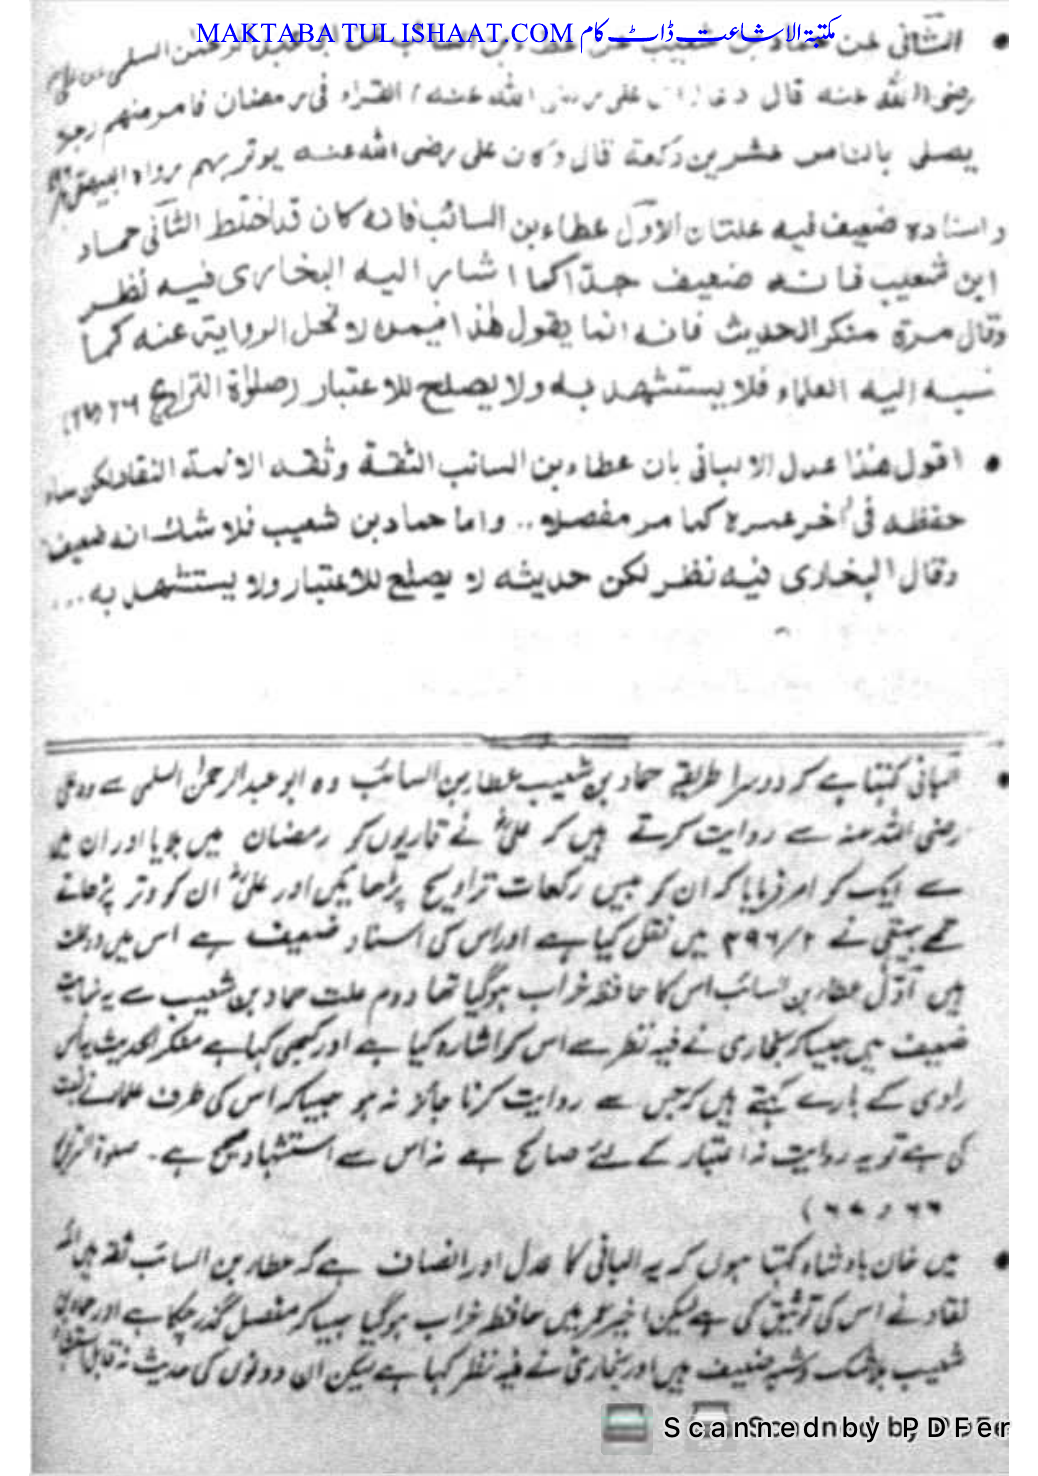 MAKTABA TUL ISHAAT.COM مکتبۃ الاشاعت ڈاٹ کام
الثانی عن حماد بن شعیب عن عطاء بن السائب عن ابی عبد الرحمٰن السلمی عن علی
رضی اللہ عنہ قال دعا علی رضی اللہ عنہ القراء فی رمضان فامر منھم رجلا
یصلی بالناس عشرین رکعۃ قال وکان علی رضی اللہ عنہ یوتر بہم رواہ البیہقی
واسنادہ ضعیف فیہ علتان الاول عطاء بن السائب فانہ کان قد اختلط الثانی حماد
ابن شعیب فانہ ضعیف جدا کما اشار الیہ البخاری فیہ نظر
وقال مرۃ منکر الحدیث فانہ انما یقول ھذا فیمن لا تحل الروایۃ عنہ کما
نسبہ الیہ العلماء فلا یستشھد بہ ولا یصلح للاعتبار (صلوٰۃ التراویح ۶۶)
اقول ھذا عدل الالبانی بان عطاء بن السائب الثقۃ وثقہ الائمۃ النقاد لکن ساء
حفظہ فی اخر عمرہ کما مر مفصلا.. واما حماد بن شعیب فلا شک انہ ضعیف
وقال البخاری فیہ نظر لکن حدیثہ لا یصلح للاعتبار ولا یستشھد بہ...
البانی کہتا ہے کہ دوسرا طریق حماد بن شعیب عطاء بن السائب وہ ابو عبدالرحمٰن السلمی سے وہ علی
رضی اللہ عنہ سے روایت کرتے ہیں کہ علیؓ نے قاریوں کو رمضان میں بلایا اور ان میں
سے ایک کو امر فرمایا کہ ان کو بیس رکعات تراویح پڑھائیں اور علیؓ ان کو وتر پڑھاتے
تھے بیہقی نے ۲/۴۹۶ میں نقل کیا ہے اور اس کی اسناد ضعیف ہے اس میں دو علت
ہیں اوّل عطاء بن السائب اس کا حافظہ خراب ہوگیا تھا دوم علت حماد بن شعیب ہے یہ نہایت
ضعیف ہیں جیسا کہ بخاری نے فیہ نظر سے اس کو اشارہ کیا ہے اور کبھی کہا ہے منکر الحدیث یہ اس
راوی کے بارے کہتے ہیں کہ جس سے روایت کرنا جائز نہ ہو جیسا کہ اس کی طرف علماء نے نسبت
کی ہے تو یہ روایت نہ اعتبار کے لئے صالح ہے نہ اس سے استشہاد صحیح ہے۔ صلوۃ التراویح
۶۶ و ۶۷)
میں خان بادشاہ کہتا ہوں کہ یہ البانی کا عدل اور انصاف ہے کہ عطاء بن السائب ثقہ ہیں ائمہ
نقاد نے اس کی توثیق کی ہے لیکن اخیر عمر میں حافظہ خراب ہوگیا جیسا کہ مفصل گذر چکا ہے اور حماد بن
شعیب بلا شک و شبہ ضعیف ہیں اور بخاری نے فیہ نظر کہا ہے لیکن ان دونوں کی حدیث نہ قابل استشہاد
Scanned by PDFer